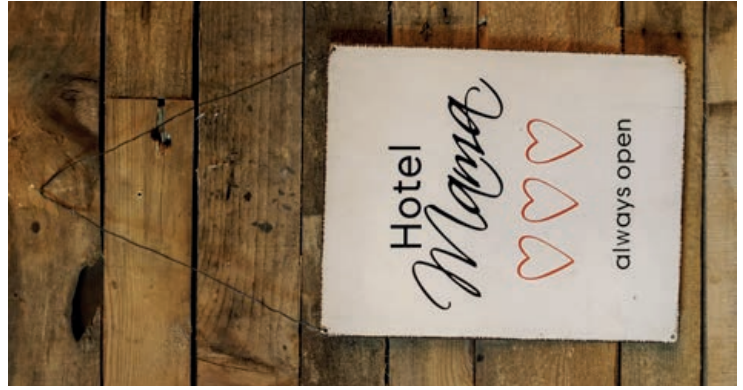 Hotel
Mama
always open